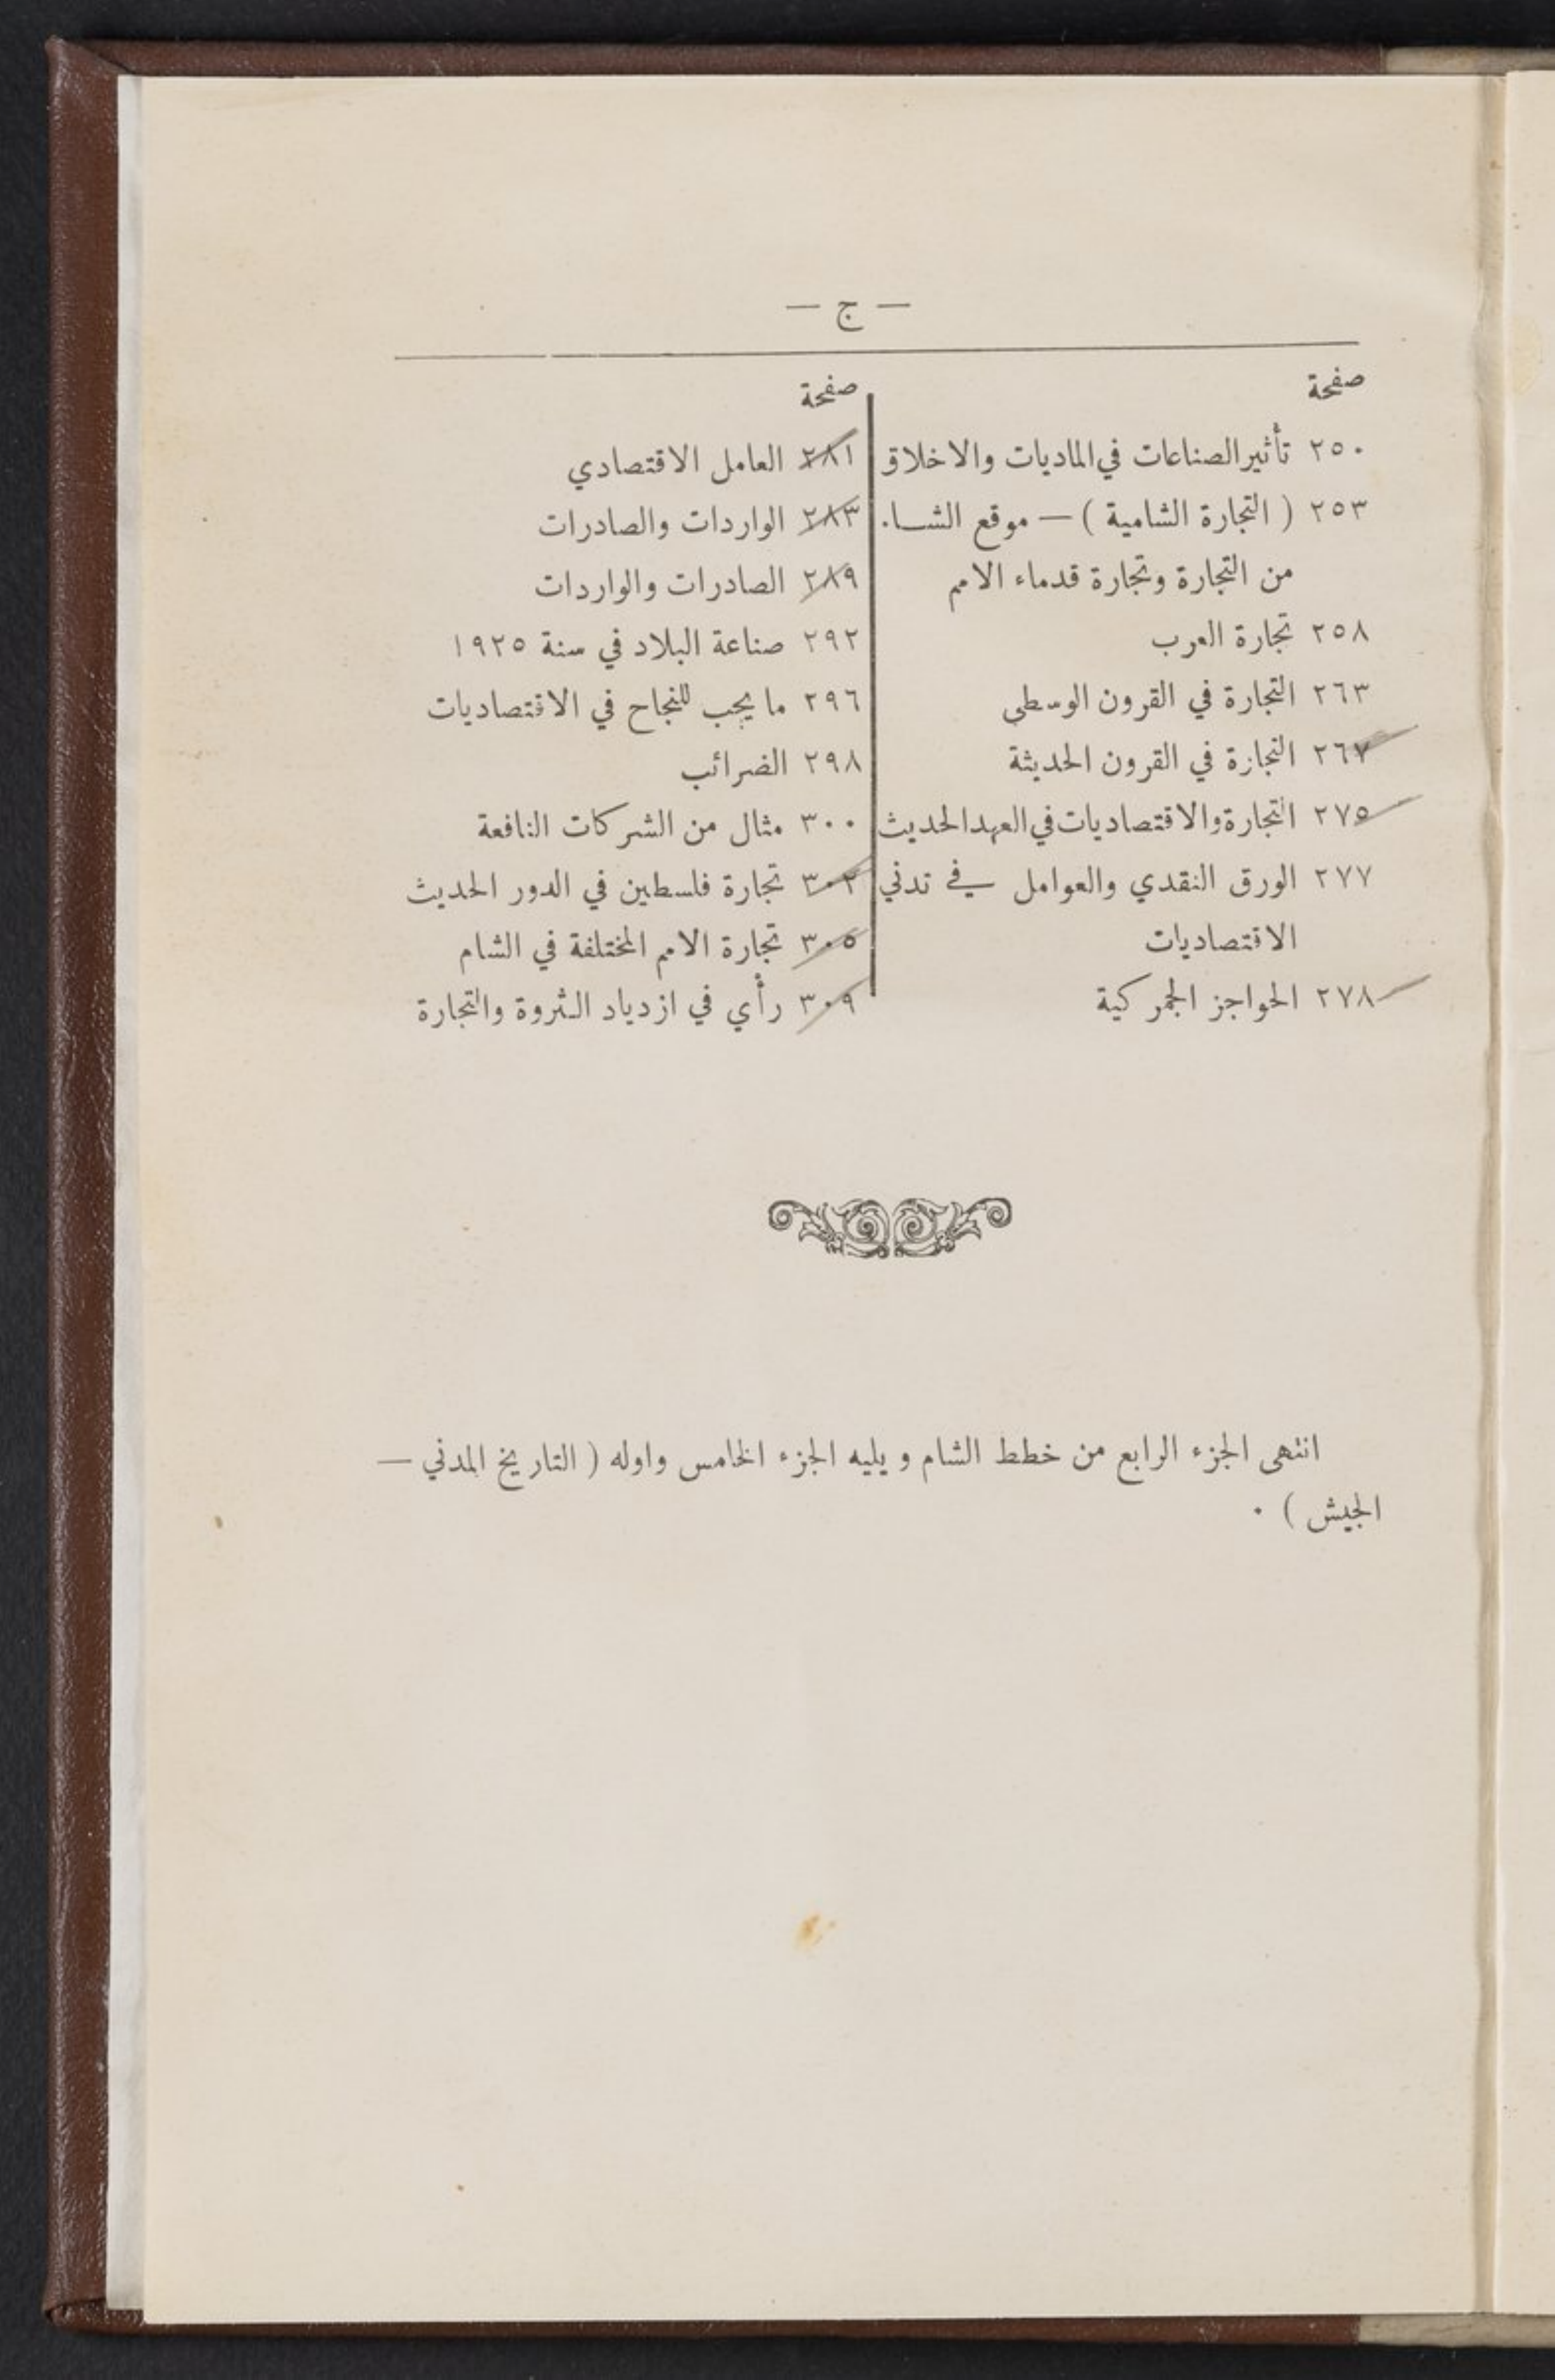 — ج —
صفحة
٢٥٠ تأثير الصناعات في الماديات والاخلاق
٢٥٣ ( التجارة الشامية ) — موقع الشـا.
من التجارة وتجارة قدماء الامم
٢٥٨ تجارة العرب
٢٦٣ التجارة في القرون الوسطى
٢٦٧ التجارة في القرون الحديثة
٢٧٥ التجارة والاقتصاديات في العهد الحديث
٢٧٧ الورق النقدي والعوامل في تدني
الاقتصاديات
٢٧٨ الحواجز الجمركية
صفحة
٢٨١ العامل الاقتصادي
٢٨٣ الواردات والصادرات
٢٨٩ الصادرات والواردات
٢٩٢ صناعة البلاد في سنة ١٩٢٥
٢٩٦ ما يجب للنجاح في الاقتصاديات
٢٩٨ الضرائب
٣٠٠ مثال من الشركات النافعة
٣٠٢ تجارة فلسطين في الدور الحديث
٣٠٥ تجارة الامم المختلفة في الشام
٣٠٩ رأي في ازدياد الثروة والتجارة
انتهى الجزء الرابع من خطط الشام ويليه الجزء الخامس واوله ( التاريخ المدني —
الجيش ) ٠